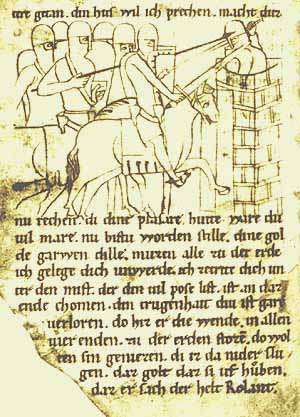 gitan. din hus wil ich prechen. macht duz
nu rechen. di dine plasare. hutte ware du
uil mare. nu bistu worden stille. dine gol
de garwen dille. muzen alle zu der erde
ich gelege dich unwerde. ich dich un
ter den mist. der den uil pose list. ist an daz
ende chomen. den trugenhait diu ist gare
uerloren. do hiz er die wende. in allen
uier enden. zu der erden storen. do wol
ten sin genieren. di er da nider slu
gen. daz golt daz si uf huben.
daz er sach der helt Rolant.